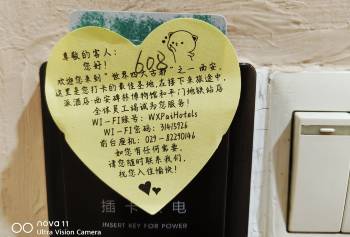 尊敬的客人：
608
您好！
欢迎您来到"世界四大古都"之一西安，
这里是您打卡的最佳基地，在接下来旅途中，
派酒店·西安碑林博物馆和平门地铁站店
全体员工竭诚为您服务！
WI-FI账号：WXPaiHotels
WI-FI密码：31415926
前台座机：029-82290146
如您有任何需要，
请您随时联系我们，
祝您入住愉快！
插卡 电
INSERT KEY FOR POWER
nova 11
Ultra Vision Camera